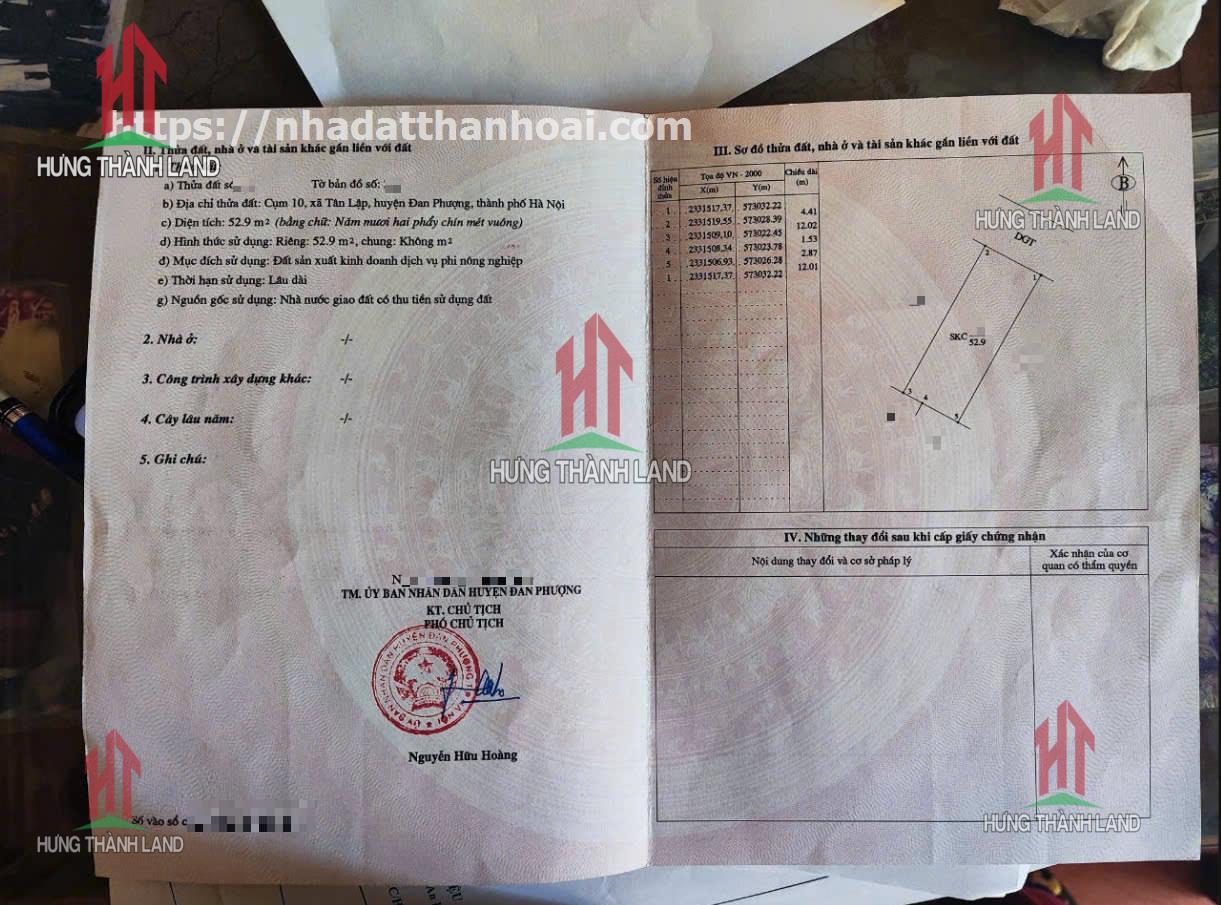 https://nhadatthanhoai.com
HƯNG THÀNH LAND
II. Thửa đất, nhà ở và tài sản khác gắn liền với đất
a) Thửa đất số: Tờ bản đồ số:
b) Địa chỉ thửa đất: Cụm 10, xã Tân Lập, huyện Đan Phượng, thành phố Hà Nội
c) Diện tích: 52.9 m² (bằng chữ: Năm mươi hai phẩy chín mét vuông)
d) Hình thức sử dụng: Riêng: 52.9 m², chung: Không m²
đ) Mục đích sử dụng: Đất sản xuất kinh doanh dịch vụ phi nông nghiệp
e) Thời hạn sử dụng: Lâu dài
g) Nguồn gốc sử dụng: Nhà nước giao đất có thu tiền sử dụng đất
2. Nhà ở: -/-
3. Công trình xây dựng khác: -/-
4. Cây lâu năm: -/-
5. Ghi chú:
HƯNG THÀNH LAND
N
TM. ỦY BAN NHÂN DÂN HUYỆN ĐAN PHƯỢNG
KT. CHỦ TỊCH
PHÓ CHỦ TỊCH
ỦY BAN NHÂN DÂN HUYỆN ĐAN PHƯỢNG T.P HÀ NỘI
Nguyễn Hữu Hoàng
Số vào sổ c
HƯNG THÀNH LAND
III. Sơ đồ thửa đất, nhà ở và tài sản khác gắn liền với đất
Số hiệu đỉnh thửa
Tọa độ VN - 2000
Chiều dài (m)
X(m) Y(m)
1 2331517.37 573032.22
4.41
2 2331519.55 573028.39
12.02
3 2331509.10 573022.45
1.53
4 2331508.34 573023.78
2.87
5 2331506.93 573026.28
12.01
1 2331517.37 573032.22
B
HƯNG THÀNH LAND
DGT
2
1
SKC
52.9
3
4
5
IV. Những thay đổi sau khi cấp giấy chứng nhận
Nội dung thay đổi và cơ sở pháp lý
Xác nhận của cơ
quan có thẩm quyền
HƯNG THÀNH LAND